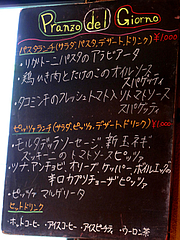 Pranzo del Giorno
パスタランチ(サラダ、パスタ、デザート、ドリンク)¥1000
・リガトーニパスタのアラビアータ
・鶏ひき肉とたけのこのオイルソース
スパゲティ
・タコミンチのフレッシュトマト入りトマトソース
スパゲティ
ピッツァランチ(サラダ、ピッツァ、デザート、ドリンク)¥1000
・モルタデッラソーセージ、新玉ネギ、
ズッキーニのトマトソースピッツァ
・ツナ、アンチョビ、オリーブ、ケッパー、ボイルエッグの
辛口カプリチョーザピッツァ
・ピッツァ マルゲリータ
セットドリンク
ホットコーヒー・アイスコーヒー・アイスティー・ウーロン茶